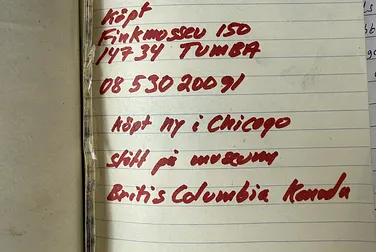 Köpt
Finkmossev 150
14734 TUMBA
08 530 200 91
Köpt ny i Chicago
stått på museum
Britis Columbia Kanada